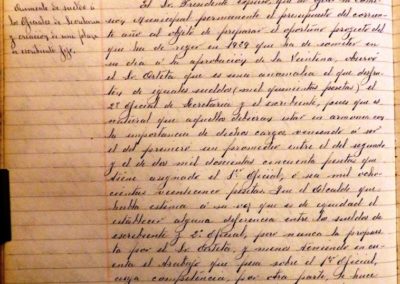 Aumento de sueldo á
los Oficiales de Secretaria
y creacion de una plaza
de escribiente fijo.
El Sr. Presidente
Municipal permanente el presupuesto del corrien-
te año al objeto de preparar el oportuno proyecto del
que ha de regir en 1929 que ha de someter en
su dia á la aprobacion de la
el Sr. Ortets que es una anomalia el que disfru-
ten de iguales sueldos (mil quinientas pesetas) el
2º oficial de Secretaria y el escribiente, pues que es
natural que aquellos debieran estar en armonia con
la importancia de dichos cargos, viniendo á ser
el del primero un promedio entre el del segundo
y el de dos mil doscientas cincuenta pesetas que
tiene asignado el 1er Oficial, ó sea mil ocho-
cientas veinticinco pesetas. Sres el Alcalde que
habla estima á su vez que es de equidad el
establecer alguna diferencia entre los sueldos de
escribiente y 2º Oficial, pero nunca la propues-
ta por el Sr. Ortets, y menos teniendo en cu-
enta el trabajo que pesa sobre el 1er Oficial,
cuya competencia, por otra parte, le hace